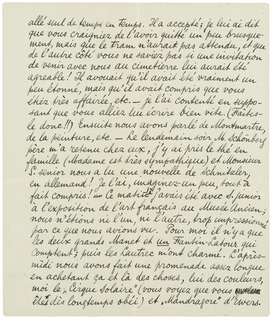 allé seul de temps en temps. Il a accepté; je lui ai dit
que vous craigniez de l'avoir quitté un peu brusque-
ment, mais que le tram n'aurait pas attendu, et que
de l'autre côté vous ne saviez pas si une invitation
de venir avec nous au cimetière lui aurait été
agréable! Il avouait qu'il avait été vraiment un
peu étonné, mais qu'il avait compris que vous
étiez très affairée, etc. – je l'ai contenté en suppo-
sant que vous alliez lui écrire bien vite. (Faites-
le donc!!) Ensuite nous avons parlé de Montmartre,
de la peinture, etc. – Le lendemain soir M. Schönberg
père m'a retenu chez eux, j'y ai pris le thé en
famille (Madame est très sympathique) et Monsieur
S. senior nous a lu une nouvelle de Schnitzler,
en allemand! Je l'ai, imaginez un peu, tout à
fait compris! – Le matin j'avais été avec S. junior
à l'exposition de l'art français au Musée ancien;
nous n'étions ni l'un, ni l'autre, trop impressionné
par ce que nous avions vu. Pour moi il n'y a que
les deux grands Manet et un Fantin-Latour qui
comptent; puis les Lautrec m'ont charmé. L'après-
midi nous avons fait une promenade assez longue
en achetant ça et là des choses, lui des couleurs,
moi la "Leique solaire" (vous voyez que vous
êtes dès longtemps obéi) et "Mandragore" d'Ewers.